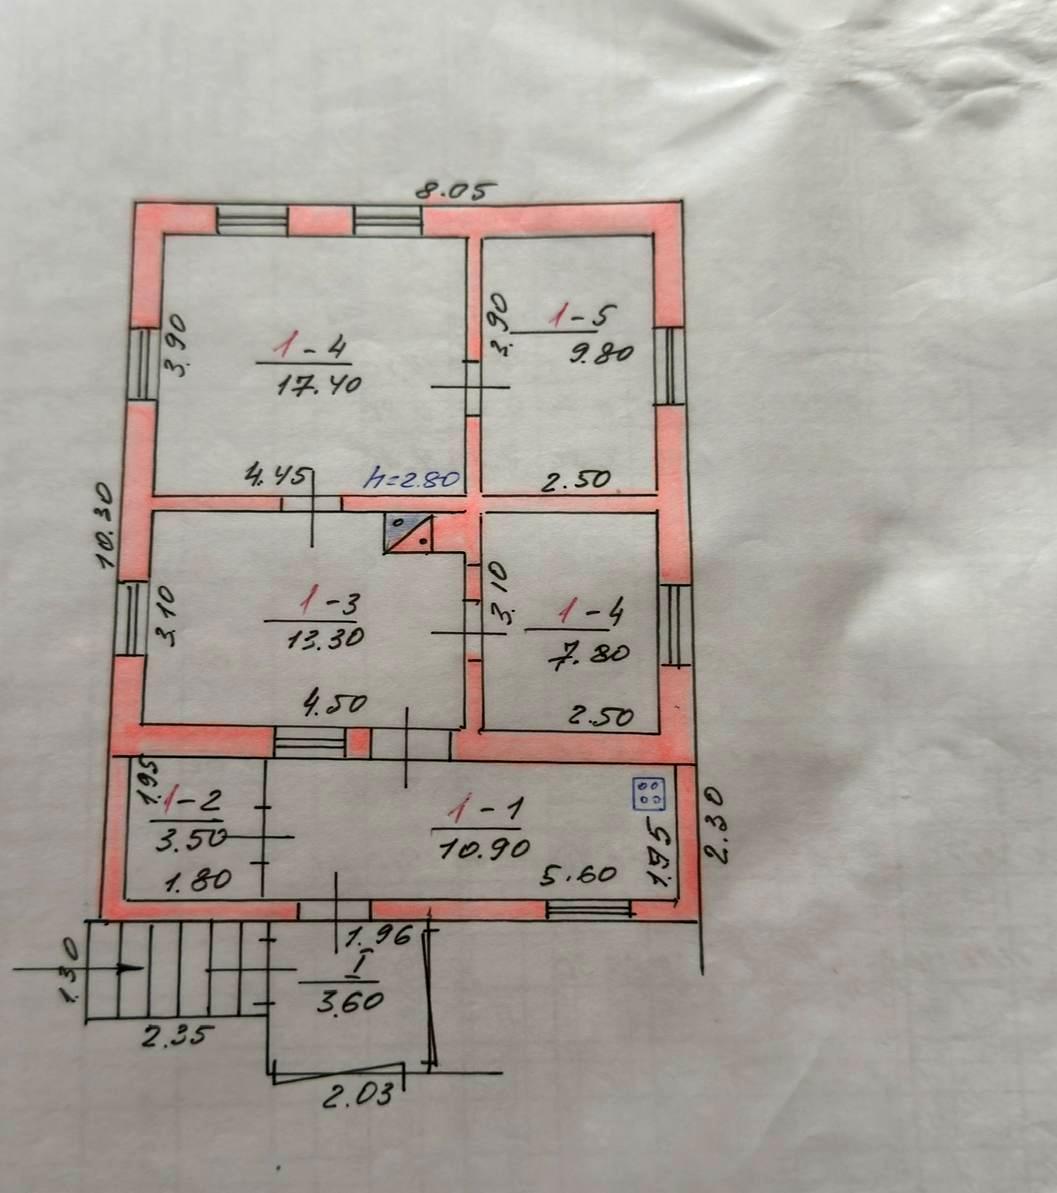 8.05
3.90
1-4
17.40
4.45
h=2.80
3.90
1-5
9.80
2.50
10.30
3.10
1-3
13.30
4.50
3.10
1-4
7.80
2.50
1.95
1-2
3.50
1.80
1-1
10.90
5.60
1.75
2.30
1.30
2.35
1.96
I
3.60
2.03